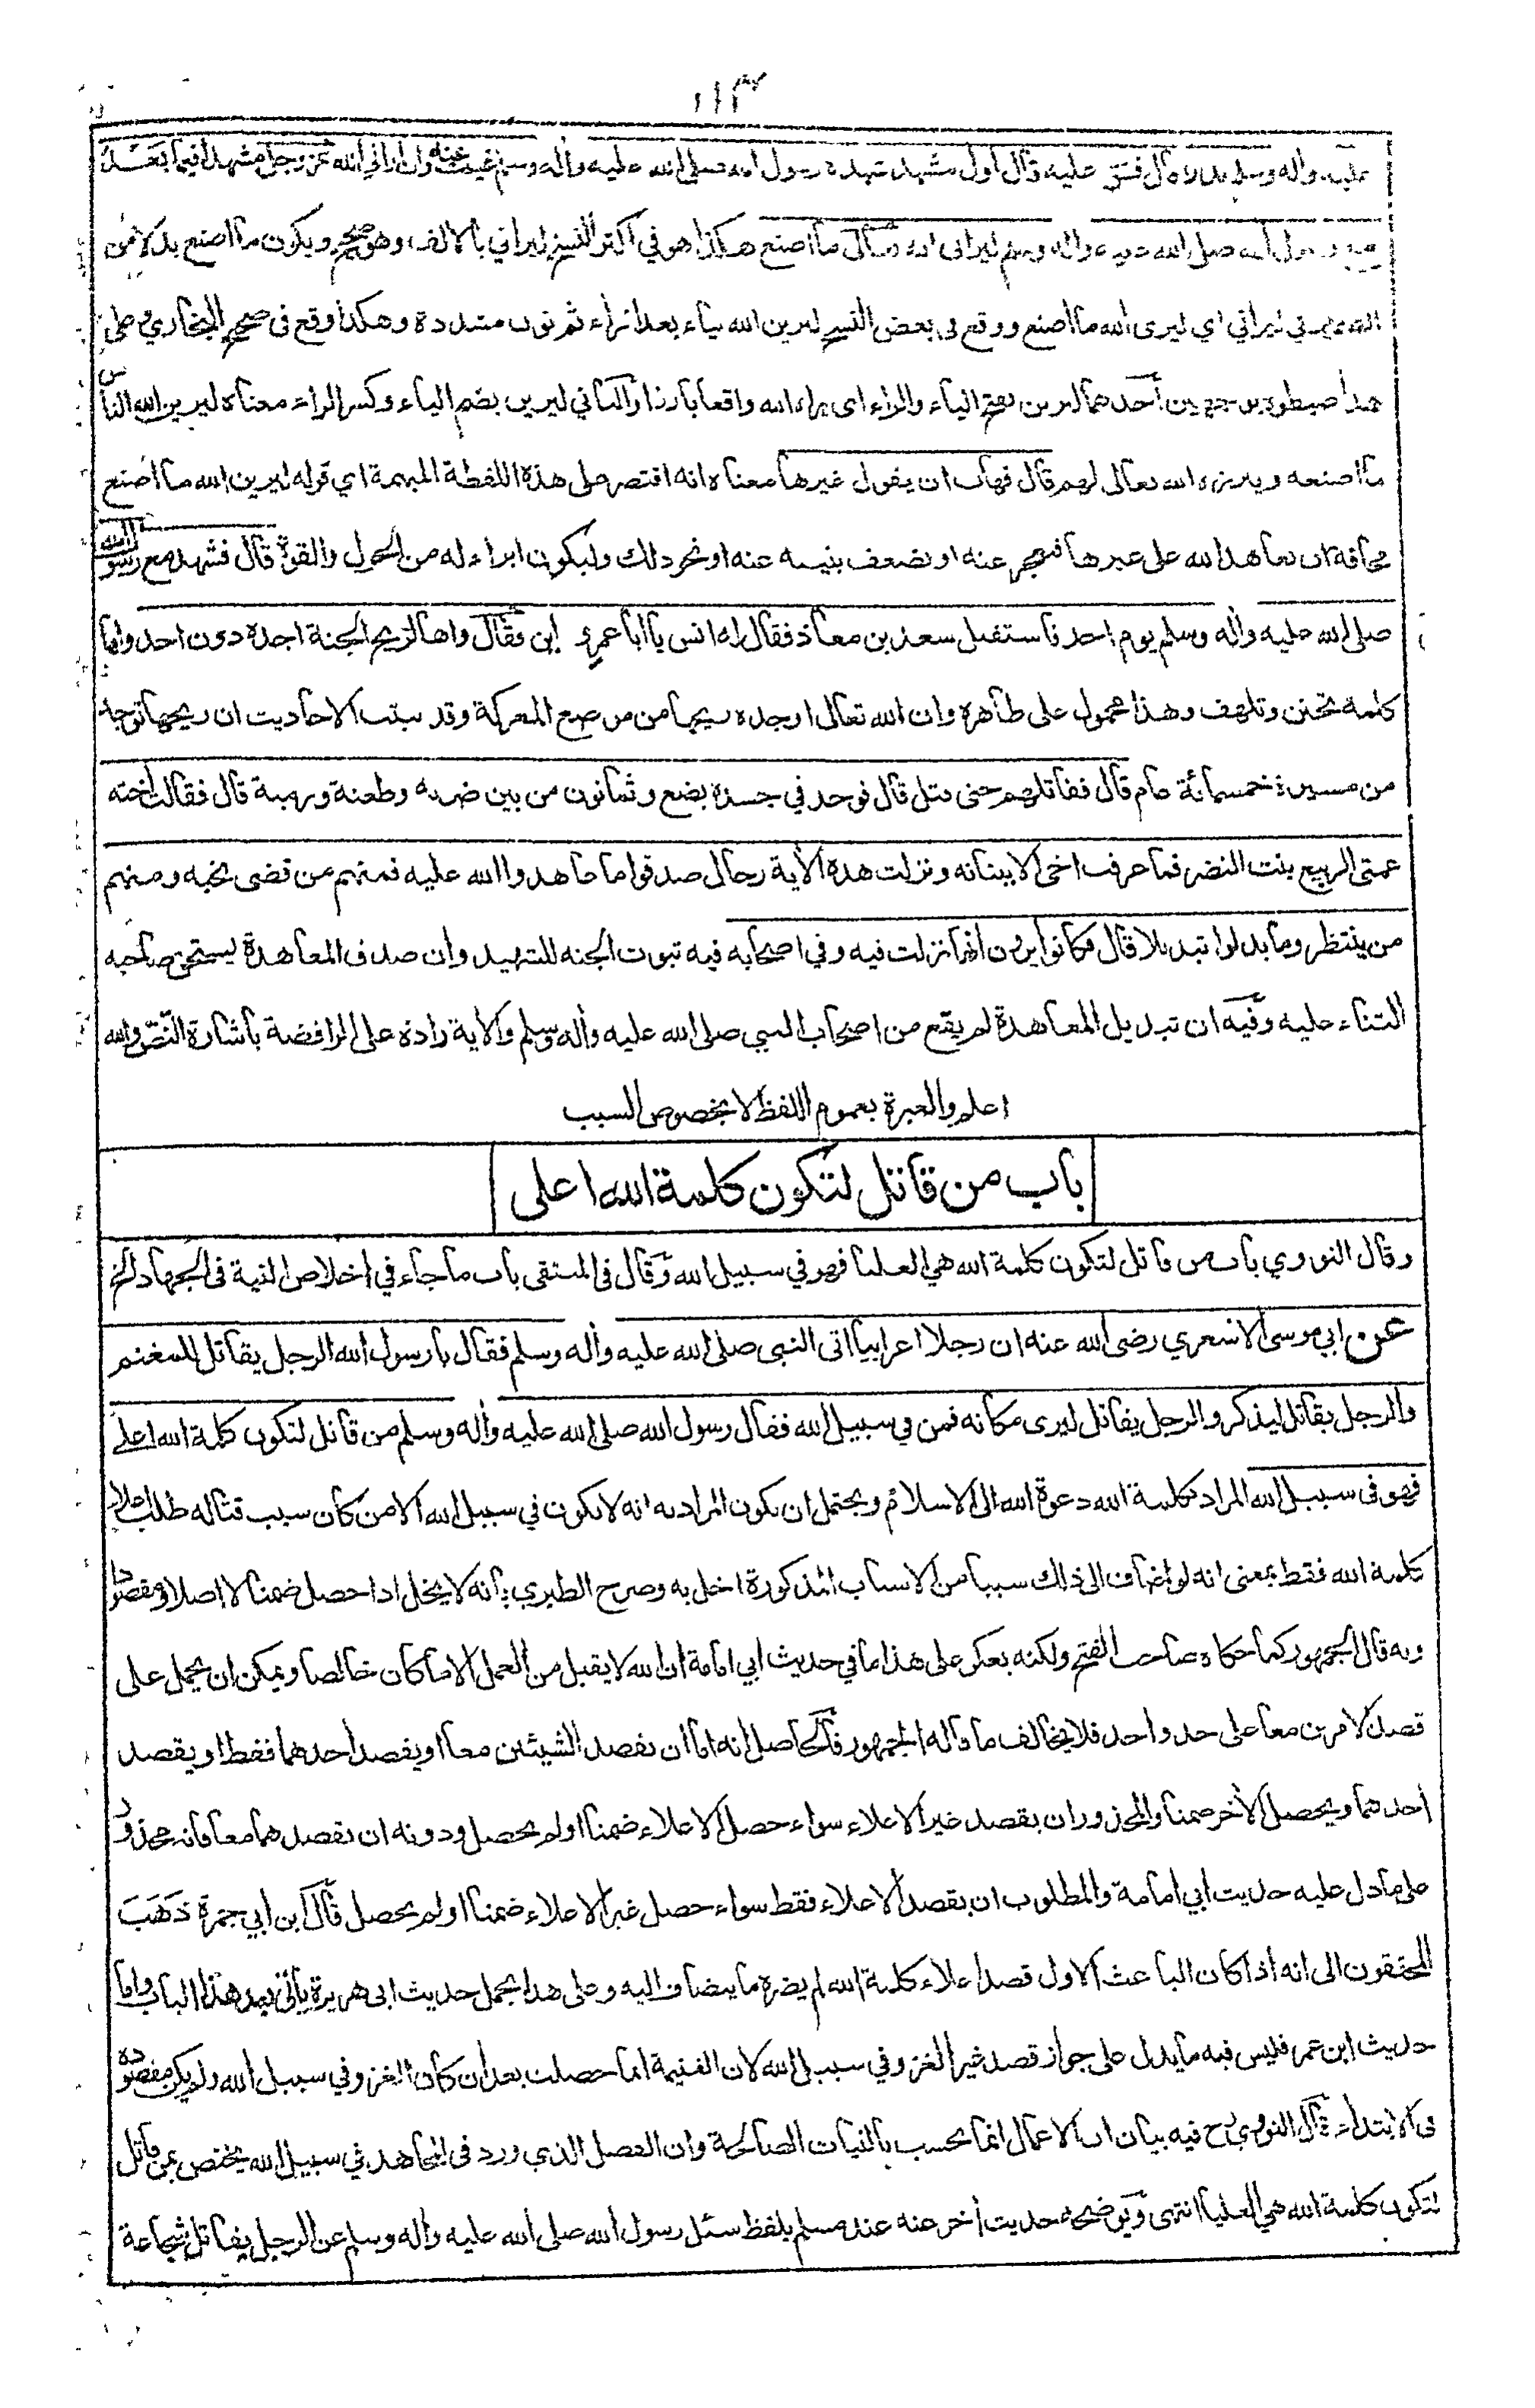 ١١٣
عليه وأله وسلم بدرا قال فشق عليه وقال اول مشهد شهده رسول الله صلى الله عليه وأله وسلم غيبت عنه وان اراني الله عز وجل مشهدا فيما بعد
مع رسول الله صلى الله عليه واله وسلم ليراني الله تعالى ما اصنع هكذا هو في اكثر النسخ ليراني بالالف وهو صحيح ويكون ما اصنع بدلا من
الضمير في ليراني اي ليرى الله ما اصنع ووقع في بعض النسخ ليرين الله بياء بعد الراء ثم نون مشددة وهكذا وقع في صحيح البخاري وعلى
هذا ضبطوه بوجهين أحدهما ليرين بفتح الياء والراء اي يراه الله واقعا بارزا والثاني ليرين بضم الياء وكسر الراء معناه ليرين الله الناس
ما اصنعه ويبرزه الله تعالى لهم قال فهاب ان يقول غيرها معناه انه اقتصر على هذه اللفظة المبهمة اي قوله ليرين الله ما اصنع
مخافة ان يعاهد الله على غيرها فيعجز عنه او تضعف بنيته عنه او نحو ذلك وليكون ابراء له من الحول والقوة قال فشهد مع رسول الله
صلى الله عليه وأله وسلم يوم احد فاستقبل سعد بن معاذ فقال له انس يا ابا عمرو اين فقال واها لريح الجنة اجده دون احد واها
كلمة تحنن وتلهف وهذا محمول على ظاهره وان الله تعالى اوجده ريحها من موضع المعركة وقد ثبتت الاحاديث ان ريحها توجد
من مسيرة خمسمائة عام قال فقاتلهم حتى قتل قال فوجد في جسده بضع وثمانون من بين ضربة وطعنة ورمية قال فقالت اخته
عمتي الربيع بنت النضر فما عرفت اخي الا ببنانه ونزلت هذه الأية رجال صدقوا ما عاهدوا الله عليه فمنهم من قضى نحبه ومنهم
من ينتظر وما بدلوا تبديلا قال فكانوا يرون انها نزلت فيه وفي اصحابه فيه ثبوت الجنة للشهيد وان صدق المعاهدة يستحق صاحبه
الثناء عليه وفيه ان تبديل المعاهدة لم يقع من اصحاب النبي صلى الله عليه وأله وسلم والأية رادة على الرافضة باشارة النص والله
اعلم والعبرة بعموم اللفظ لا بخصوص السبب
باب من قاتل لتكون كلمة الله اعلى
وقال النووي باب من قاتل لتكون كلمة الله هي العليا فهو في سبيل الله وقال في المنتقى باب ما جاء في اخلاص النية في الجهاد الخ
عن ابي موسى الاشعري رضي الله عنه ان رجلا اعرابيا اتى النبي صلى الله عليه وأله وسلم فقال يا رسول الله الرجل يقاتل للمغنم
والرجل يقاتل ليذكر والرجل يقاتل ليرى مكانه فمن في سبيل الله فقال رسول الله صلى الله عليه وأله وسلم من قاتل لتكون كلمة الله اعلى
فهو في سبيل الله المراد بكلمة الله دعوة الله الى الاسلام ويحتمل ان يكون المراد به انه لا يكون في سبيل الله الا من كان سبب قتاله طلب اعلاء
كلمة الله فقط بمعنى انه لو اضاف الى ذلك سببا من الاسباب المذكورة اخل به وصرح الطبري بانه لا يخل اذا حصل ضمنا لا اصلا ومقصودا
وبه قال الجمهور كما حكاه صاحب الفتح ولكنه يعكر على هذا ما في حديث ابي امامة ان الله لا يقبل من العمل الا ما كان خالصا ويمكن ان يحمل على
قصد الامرين معا على حد واحد فلا يخالف ما قاله الجمهور فالحاصل انه اما ان يقصد الشيئين معا او يقصد احدهما فقط او يقصد
احدهما ويحصل الأخر ضمنا والمحذور ان يقصد غير الاعلاء سواء حصل الاعلاء ضمنا او لم يحصل ودونه ان يقصدهما معا فانه محذور
على ما دل عليه حديث ابي امامة والمطلوب ان يقصد الاعلاء فقط سواء حصل غير الاعلاء ضمنا او لم يحصل قال ابن ابي جمرة ذهب
المحققون الى انه اذا كان الباعث الاول قصد اعلاء كلمة الله لم يضره ما ينضاف اليه وعلى هذا يحمل حديث ابي هريرة يأتي بعد هذا الباب واما
حديث ابن عمر فليس فيه ما يدل على جواز قصد غير الغزو في سبيل الله لان الغنيمة انما حصلت بعد ان كان الغزو في سبيل الله ولم يكن مقصوده
في الابتداء قال النووي رح فيه بيان ان الاعمال انما تحسب بالنيات الصالحة وان الفضل الذي ورد في المجاهد في سبيل الله يختص بمن قاتل
لتكون كلمة الله هي العليا انتهى ويوضحه حديث أخر عنه عند مسلم بلفظ سئل رسول الله صلى الله عليه وأله وسلم عن الرجل يقاتل شجاعة